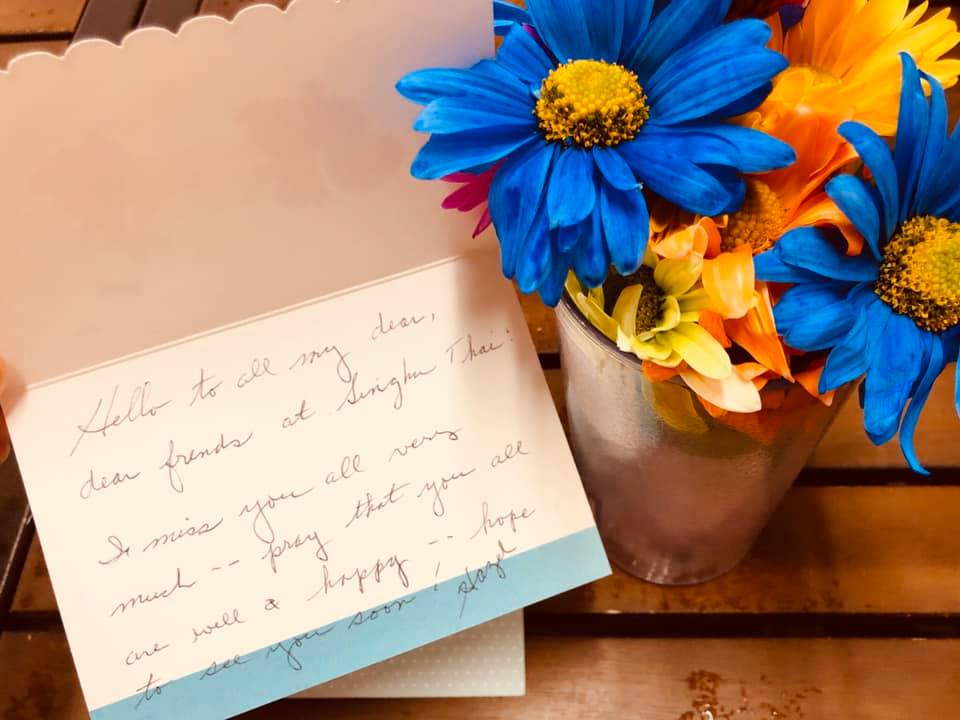 Hello to all my dear,
dear friends at Singha Thai!
I miss you all very
much -- pray that you all
are well & happy -- hope
to see you soon! Hazel